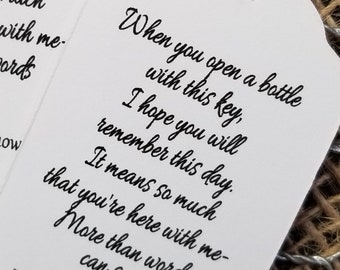 with me-
words
now
When you open a bottle
with this key,
I hope you will
remember this day.
It means so much
that you're here with me-
More than words
can